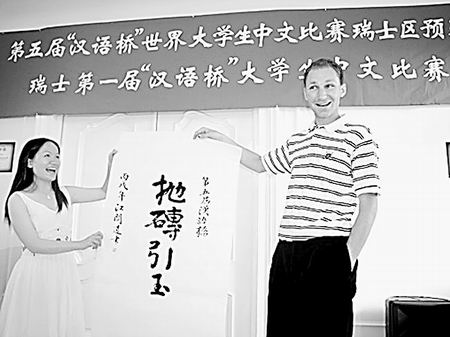 第五届“汉语桥”世界大学生中文比赛瑞士区预
瑞士第一届“汉语桥”大学生中文比赛
第五届漢语橋
抛磚引玉
丙戌年江